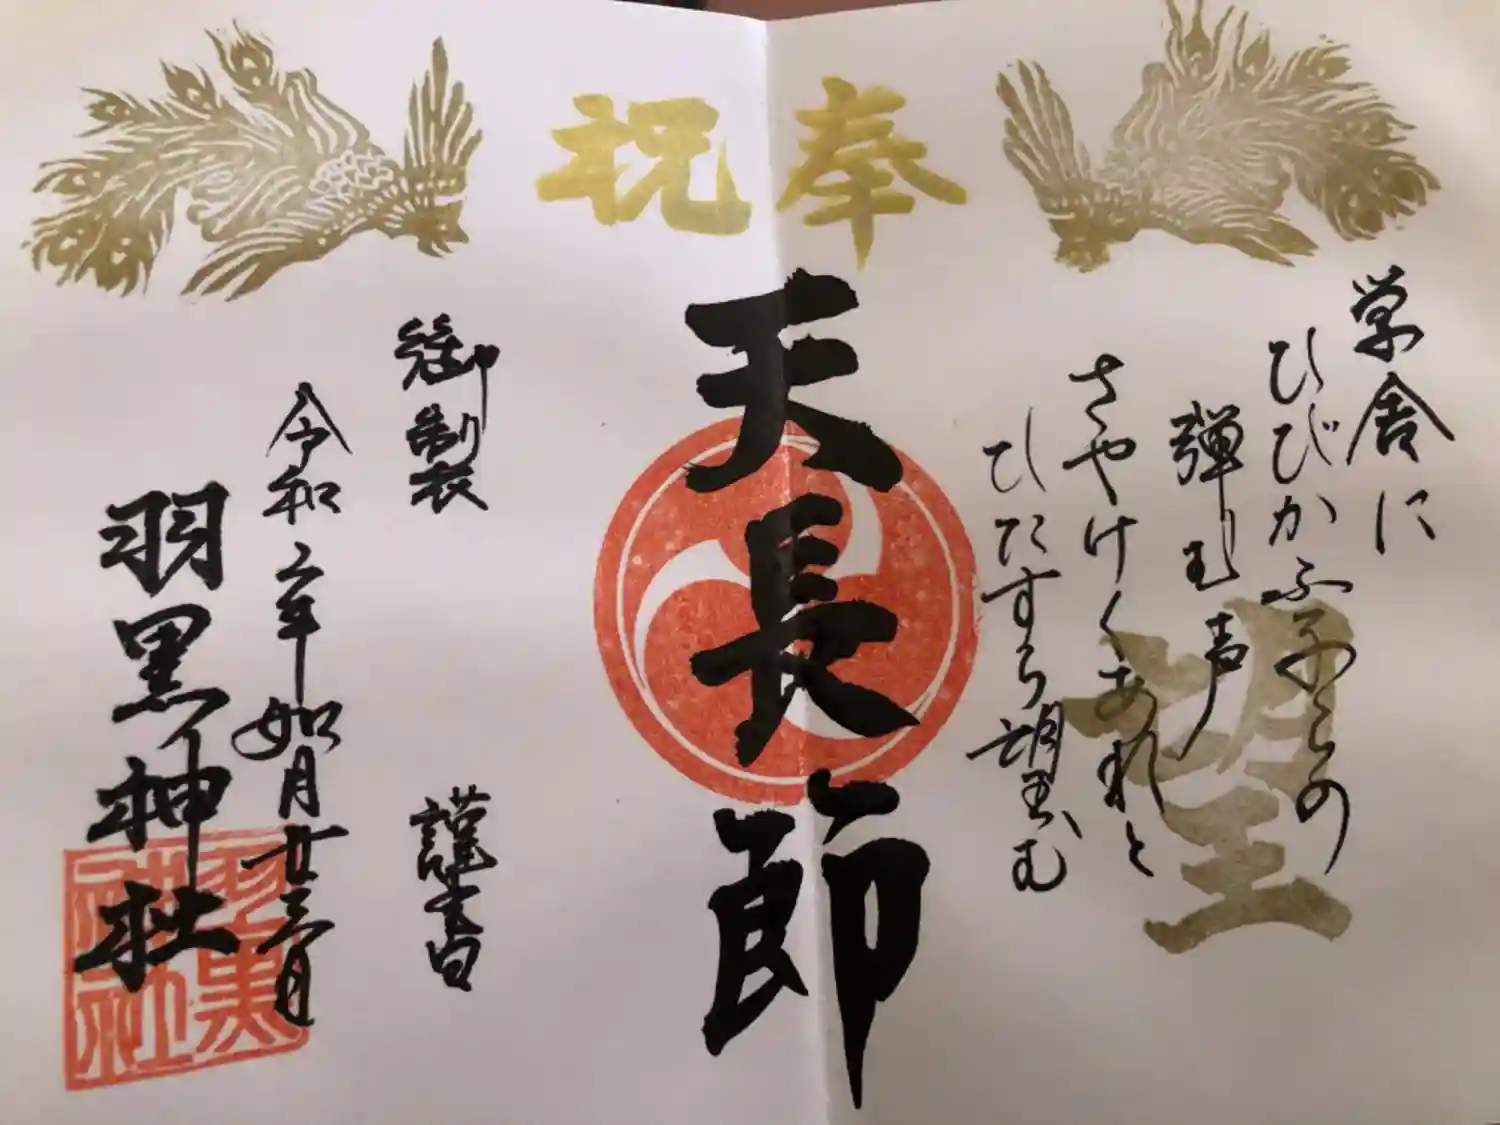 奉祝
学舎に
ひびかふ子らの
弾む声
さやけくあれと
ひたすら望む
望
天長節
御製
謹書
令和六年如月廿三日
羽黒神社
羽黒神社